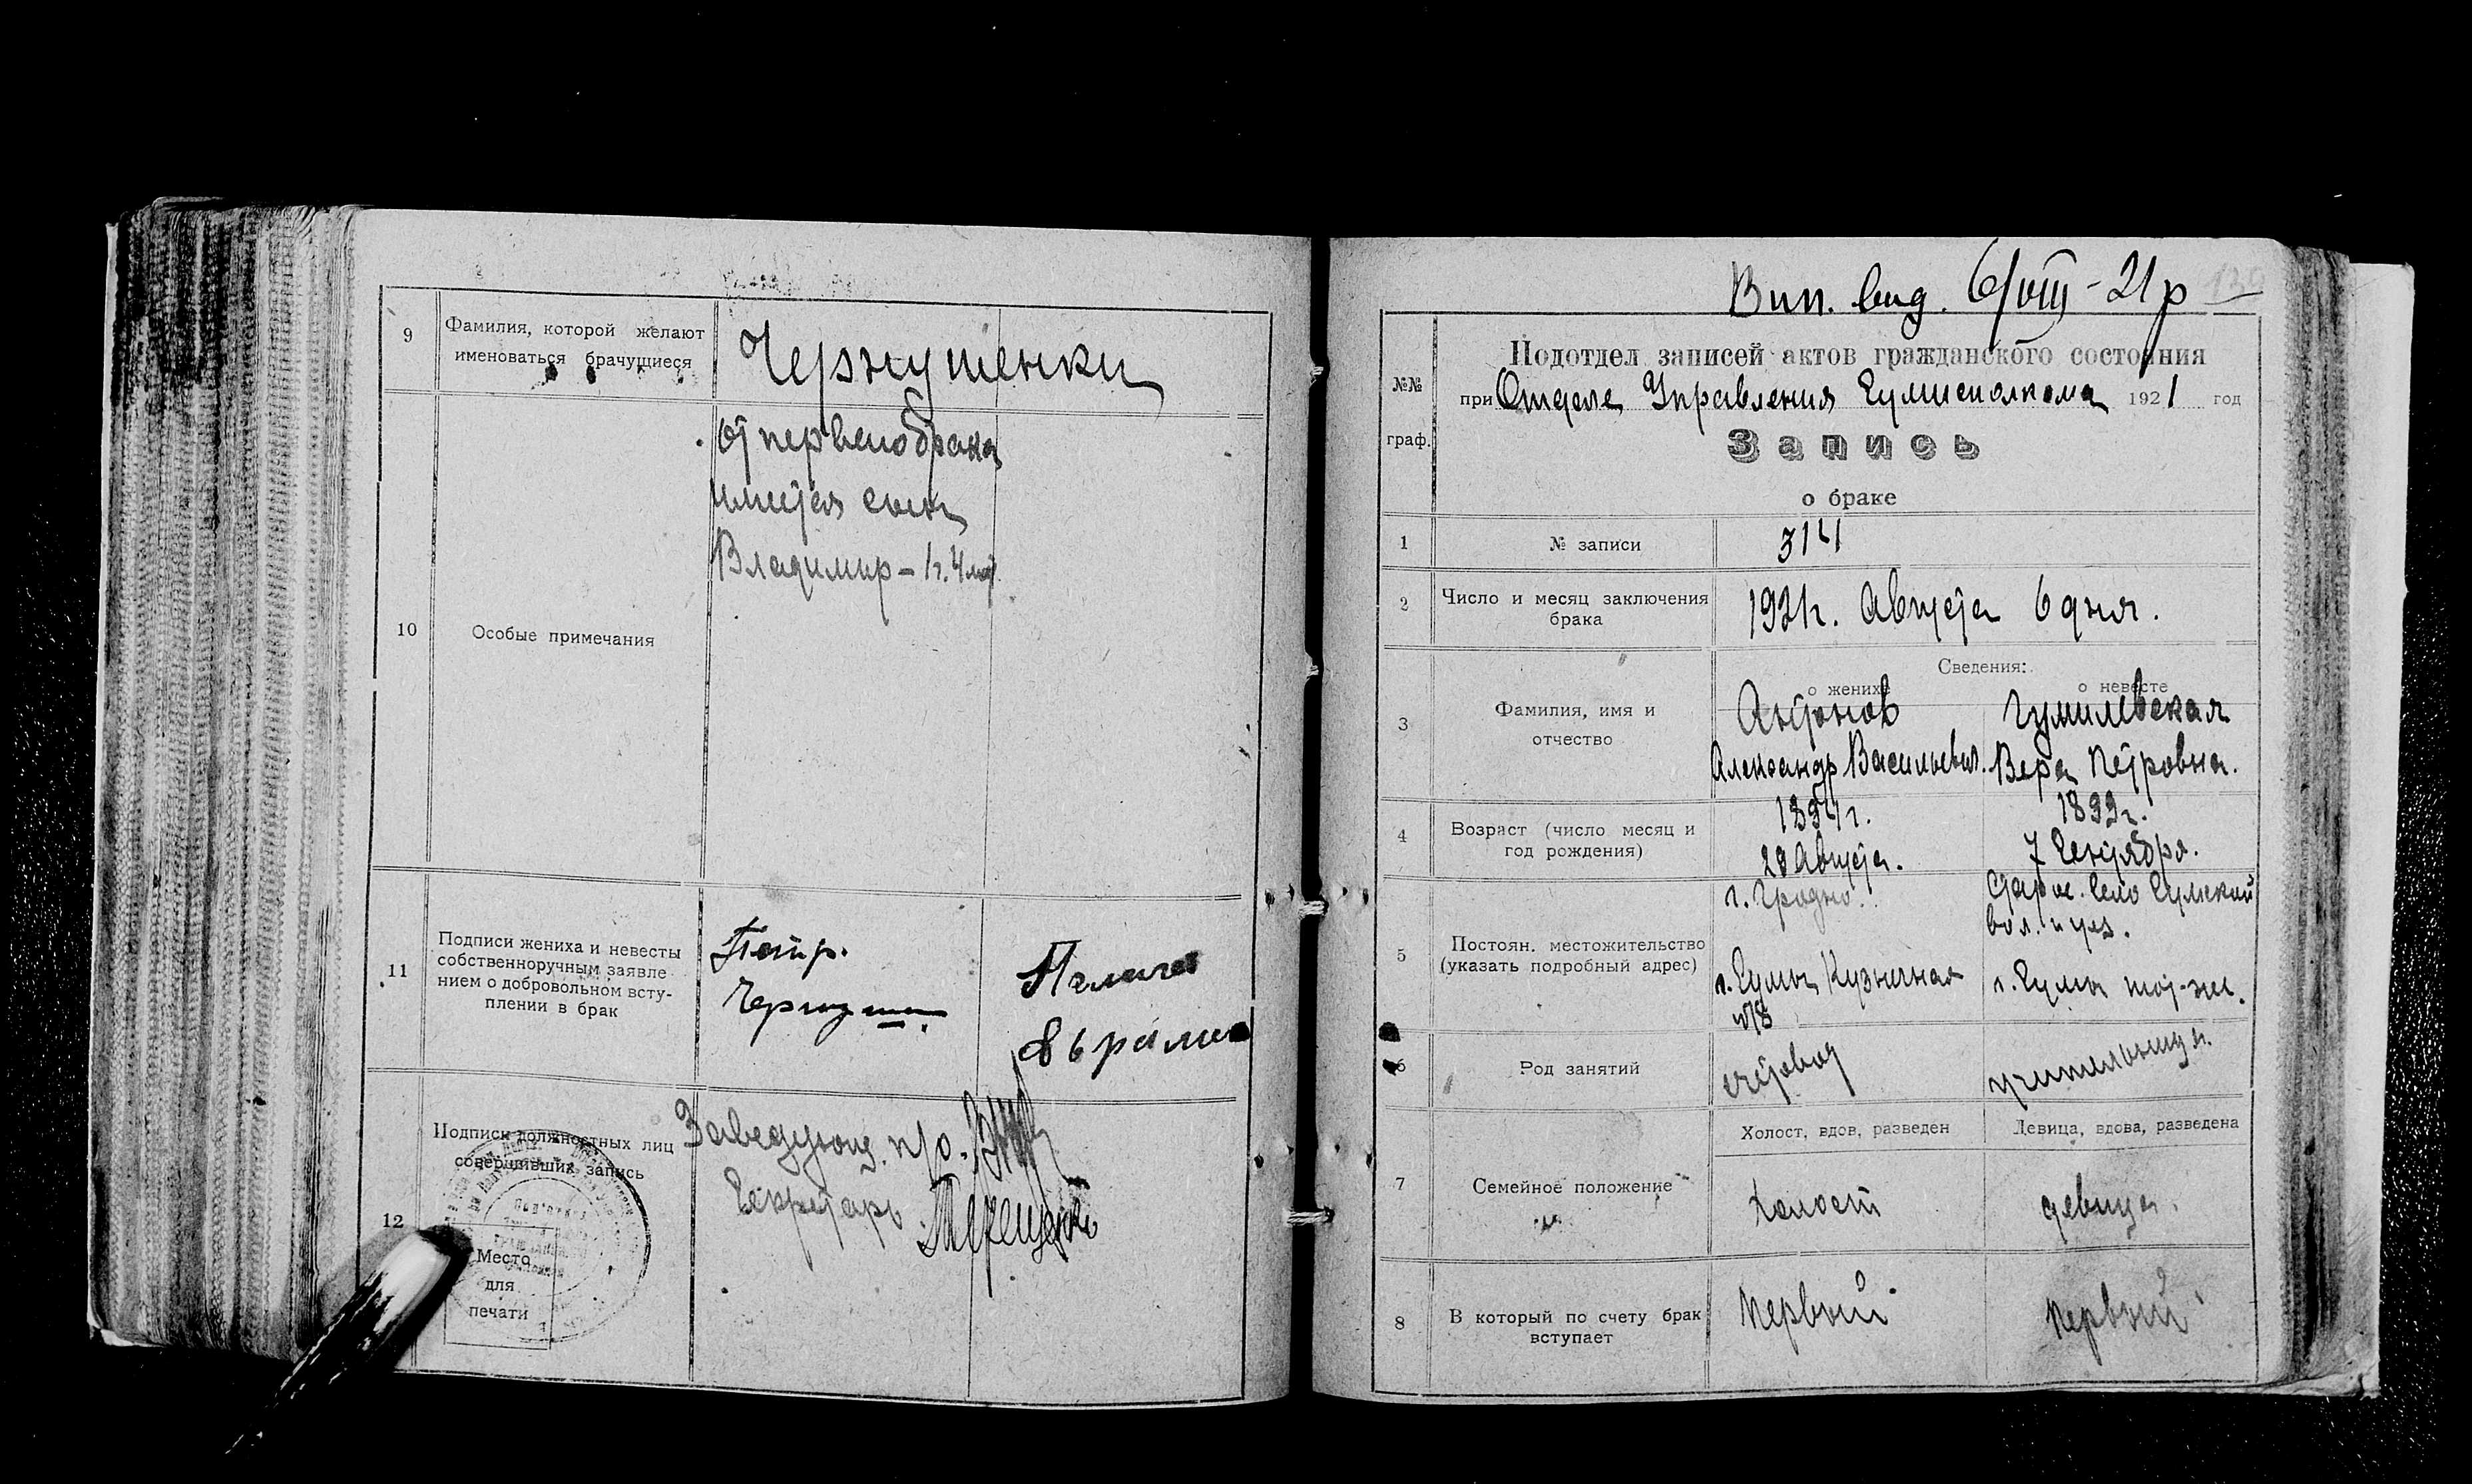 9
Фамилия, которой желают
именоваться брачущиеся
Чернушенки
10
Особые примечания
От первого брака
имеется сын
Владимир – 1 г. 4 мес.
11
Подписи жениха и невесты
собственноручным заявле-
нием о добровольном всту-
плении в брак
Петр.
12
Подписи должностных лиц
совершивших запись
Заведующ. п/о.
Секретарь Терещенко
Место
для
печати
Вип. вид. 6/VIII - 21 р
130
№№
граф.
Подотдел записей актов гражданского состояния
при Отделе Управления Сумисполкома 1921 год
Запись
о браке
1
№ записи
314
2
Число и месяц заключения
брака
1921 г. Августа 6 дня.
Сведения:
о женихе
о невесте
3
Фамилия, имя и
отчество
Антонов
Александр Васильевич.
Гумилевская
Вера Петровна.
4
Возраст (число месяц и
год рождения)
1894 г.
28 Августа.
1899 г.
7 Сентября.
5
Постоян. местожительство
(указать подробный адрес)
г. Гродно.
г. Сумы, Кузнечная
№8
Старое. Село Сумский
вол. и уез.
г. Сумы той-же.
6
Род занятий
счетовод
учительница.
7
Семейное положение
Холост, вдов, разведен
Девица, вдова, разведена
холост
девица.
8
В который по счету брак
вступает
Первый
Первый